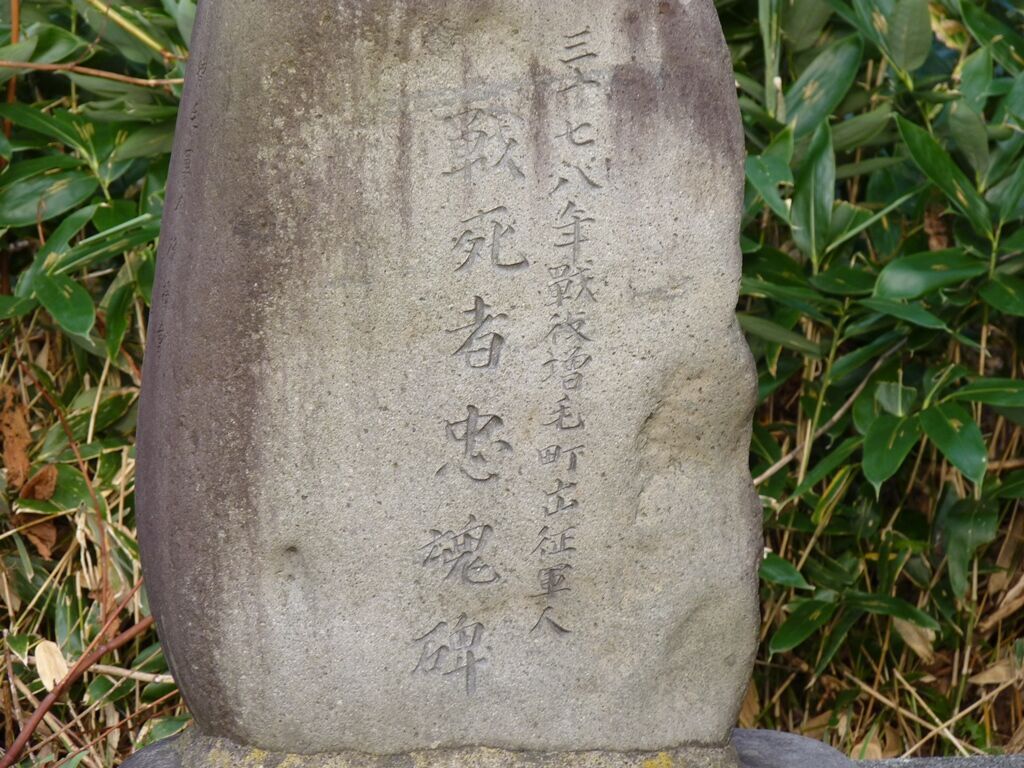 三十七八年戰役増毛町出征軍人
戦死者忠魂碑